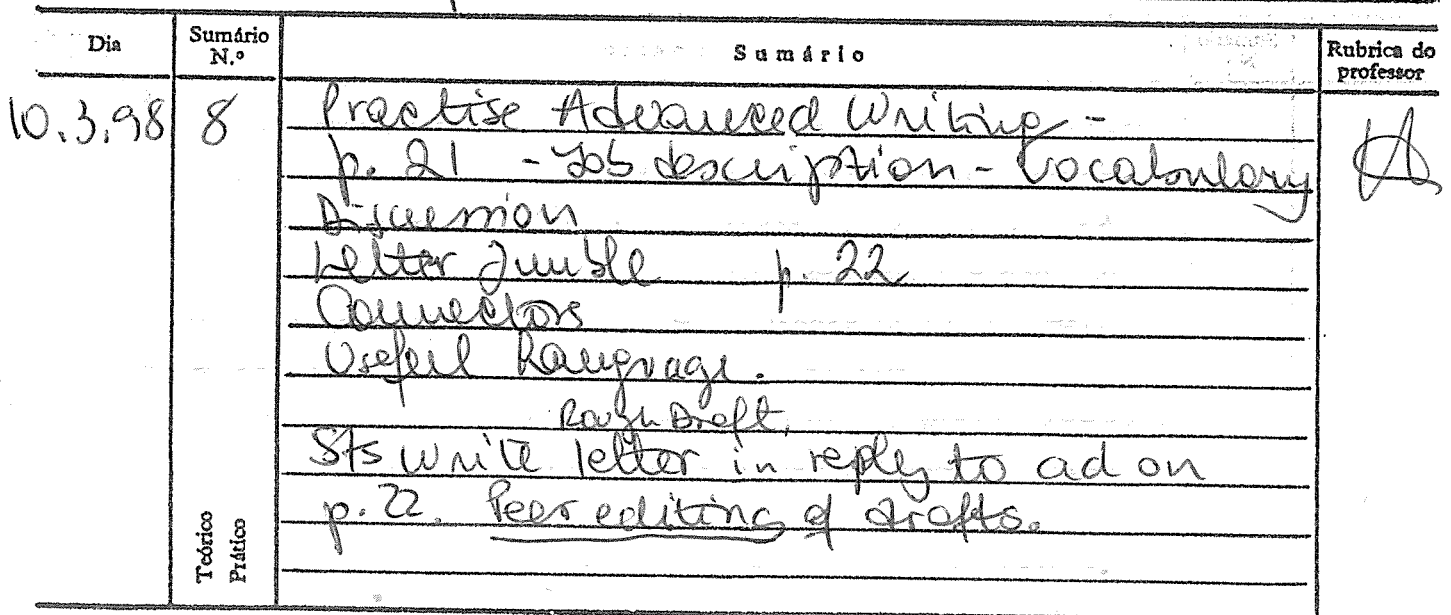 Dia
Sumário N.º
Sumário
Rubrica do professor
10.3.98
8
Practise Advanced Writing -
p. 21 - Job description - Vocabulary
Discussion
Letter Jumble p. 22
Connectors
Useful Language.
Rough Draft,
Sts write letter in reply to ad on
p. 22. Peer editing of drafts.
Teórico
Prático